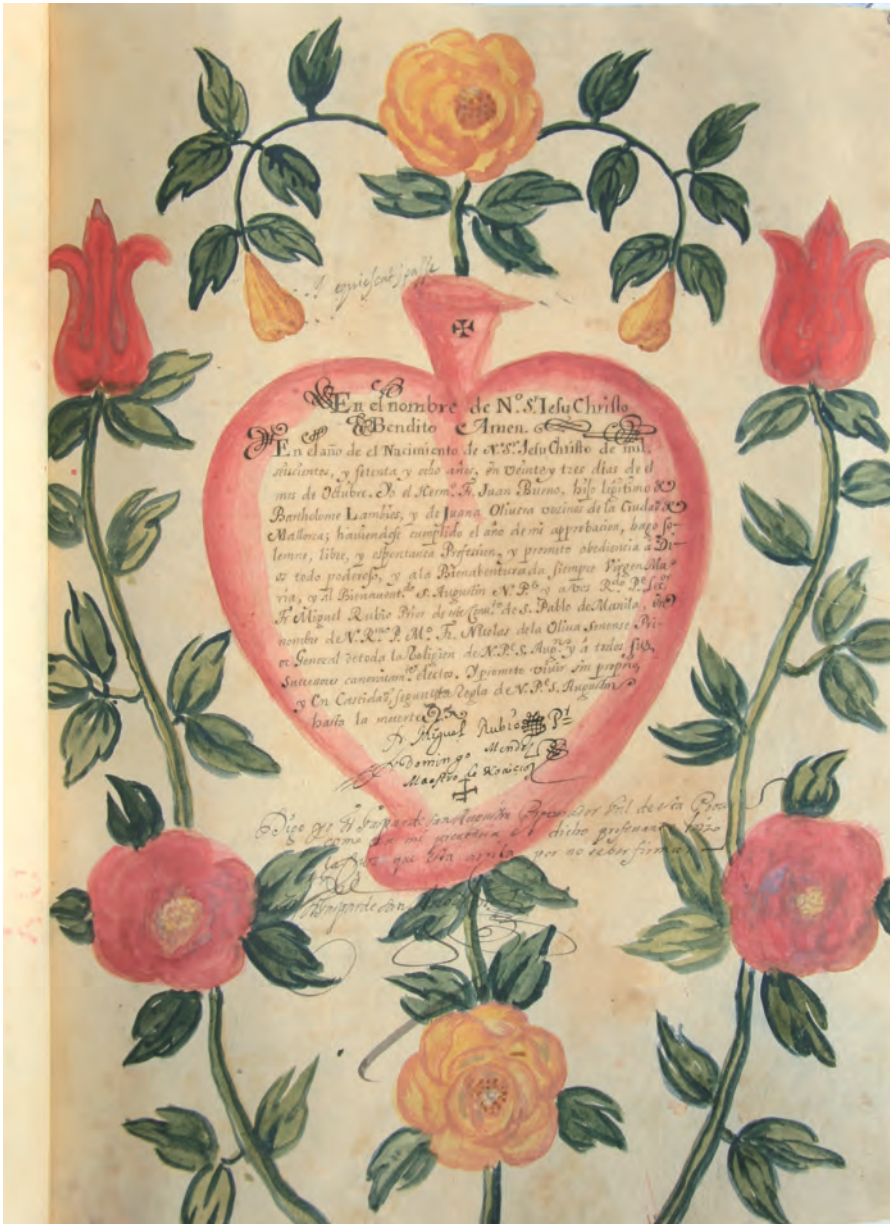 Requiescat in passe
En el nombre de N.º S.r Iesu Christo
Bendito Amen.
En el año de el Nacimiento de N. S.or Iesu Christo de mil
seiscientos, y setenta y ocho años, en veinte y tres dias de el
mes de Octubre. Yo el Herm.º Fr. Juan Bueno, hijo legitimo de
Bartholome Lambies, y de Juana Olivera vecinos de la Ciudad de
Mallorca; haviendose cumplido el año de mi approbacion, hago so-
lemne, libre, y espontanea Profession, y prometo obediencia a Di-
os todo poderoso, y a la Bienabenturada siempre Virgen Ma-
ria, y al Bienavent.do S. Augustin N. P.e y a vos R.do P.e
Fr. Miguel Rubio Prior de este Conv.to de S. Pablo de Manila, en
nombre de N. R.mo P. M.o Fr. Nicolas de la Oliva Senense Pri-
or General de toda la Religion de N. P.e S. Aug.n y á todos sus
Successores canonicam.te electos. Y prometo vivir sin proprio,
y En Castidad, segun la Regla de N. P.e S. Augustin
hasta la muerte
Fr Miguel Rubio P.r
Fr Domingo Mendez
Maestro de Novicios
Digo yo Fr Gaspar de san Augustin Procurador Gnl de esta Prov
como en mi presencia el dicho profesante hizo
la cruz que esta arriba por no saber firmar
Fr Gaspar de San Augustin